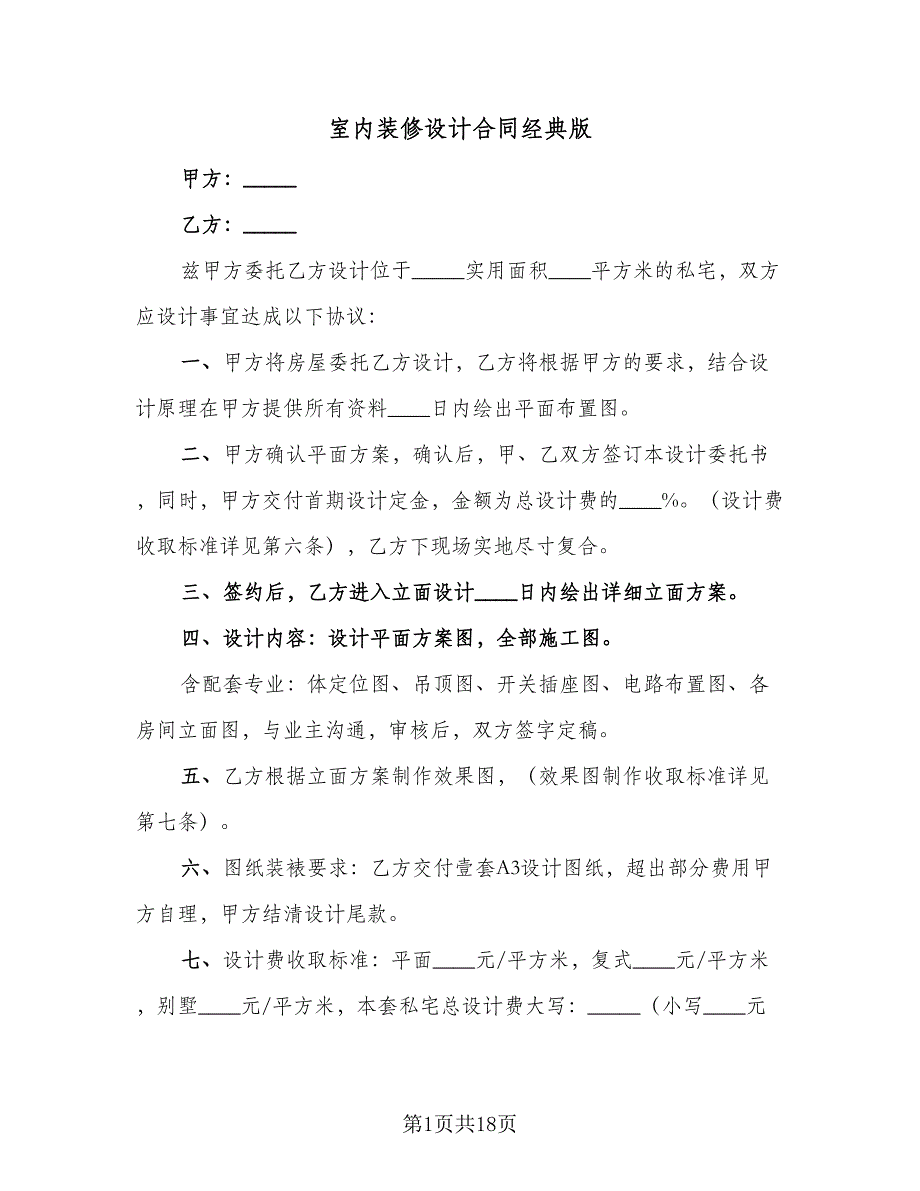 室内装修设计合同经典版
甲方：_____
乙方：_____
兹甲方委托乙方设计位于_____实用面积____平方米的私宅，双方
应设计事宜达成以下协议：
一、甲方将房屋委托乙方设计，乙方将根据甲方的要求，结合设
计原理在甲方提供所有资料____日内绘出平面布置图。
二、甲方确认平面方案，确认后，甲、乙双方签订本设计委托书
，同时，甲方交付首期设计定金，金额为总设计费的____%。（设计费
收取标准详见第六条），乙方下现场实地尺寸复合。
三、签约后，乙方进入立面设计____日内绘出详细立面方案。
四、设计内容：设计平面方案图，全部施工图。
含配套专业：体定位图、吊顶图、开关插座图、电路布置图、各
房间立面图，与业主沟通，审核后，双方签字定稿。
五、乙方根据立面方案制作效果图，（效果图制作收取标准详见
第七条）。
六、图纸装裱要求：乙方交付壹套A3设计图纸，超出部分费用甲
方自理，甲方结清设计尾款。
七、设计费收取标准：平面____元/平方米，复式____元/平方米
，别墅____元/平方米，本套私宅总设计费大写：_____（小写____元
第1页共18页